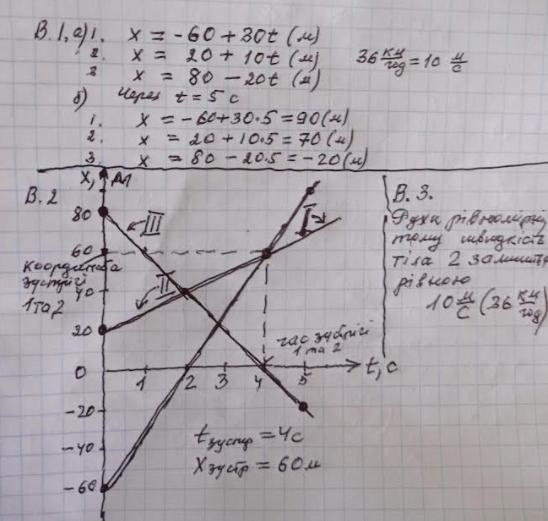 В.1, а) 1. x = -60 + 30t (м)
2. x = 20 + 10t (м)
3 x = 80 - 20t (м)
36 км/год = 10 м/с
б) Через t = 5 с
1. x = -60 + 30·5 = 90 (м)
2. x = 20 + 10·5 = 70 (м)
3. x = 80 - 20·5 = -20 (м)
В.2
x, м
80
60
40
20
0
-20
-40
-60
1 2 3 4 5
t, с
III
II
I
координата
зустрічі
1 та 2
час зустрічі
1 та 2
tзустр = 4с
xзустр = 60м
В.3.
Рухи рівномірні
тому швидкість
тіла 2
рівною
10 м/с (36 км/год)